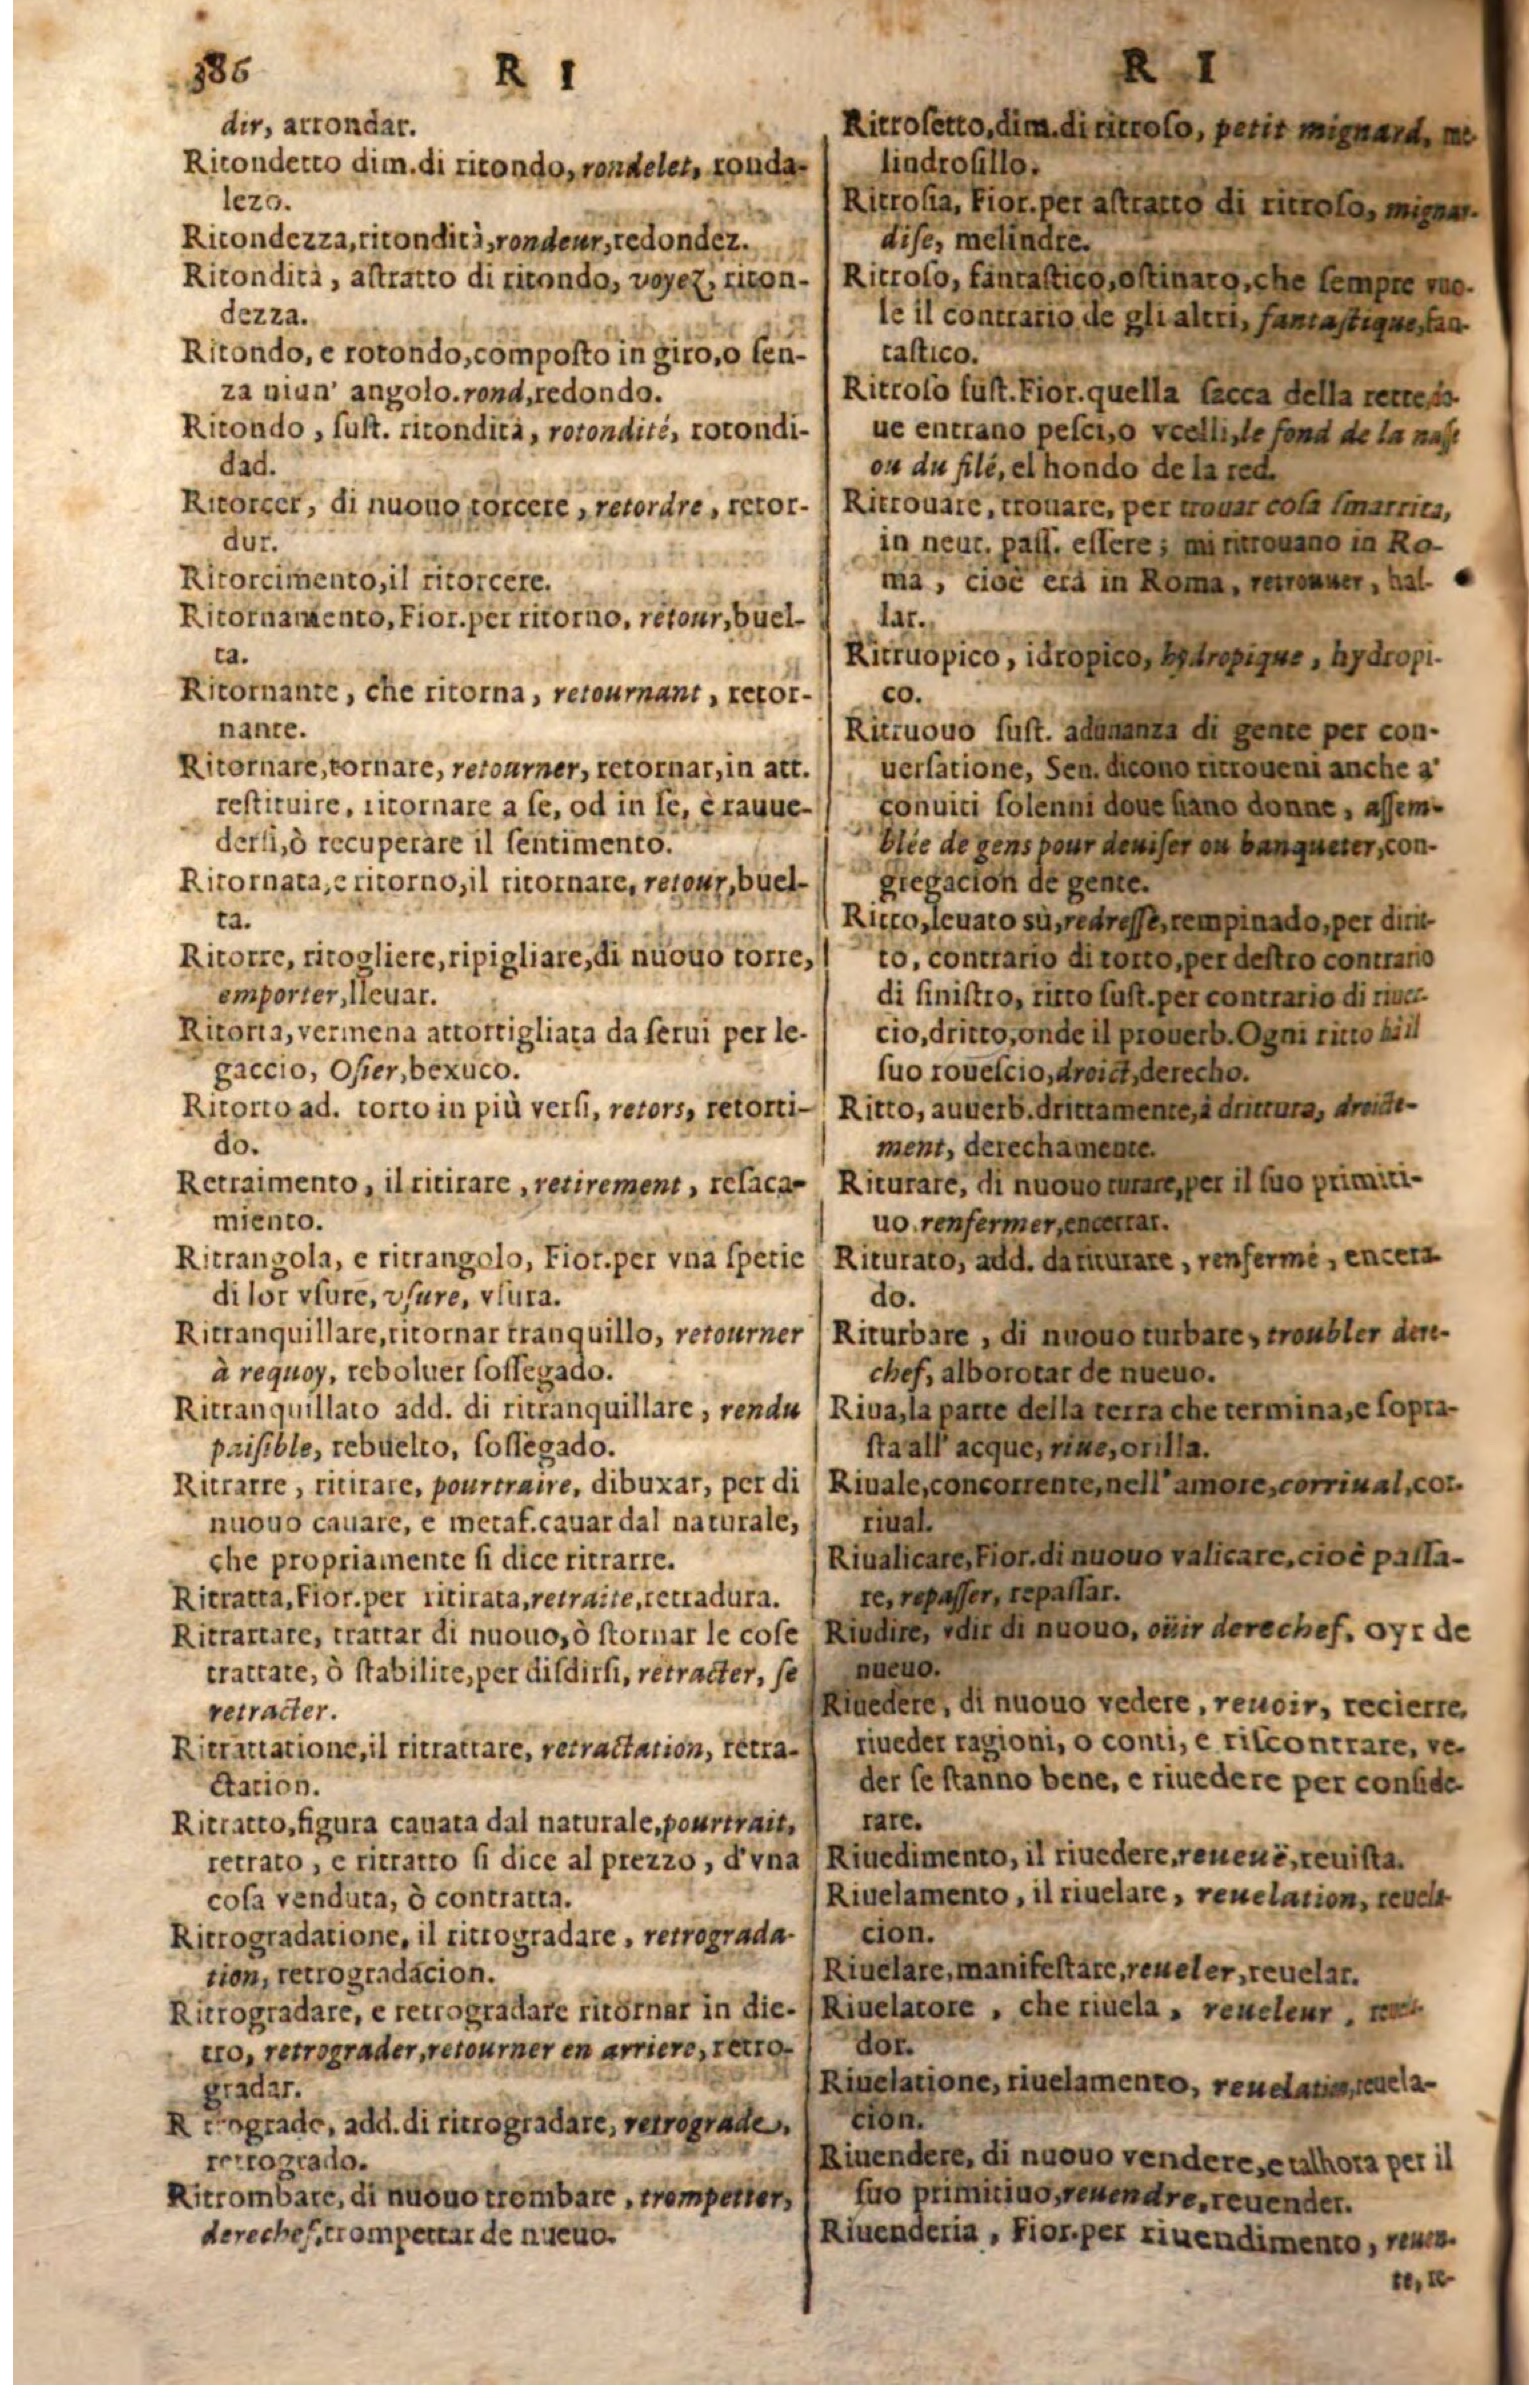 386
R I
dir, arrondar.
Ritondetto dim.di ritondo, rondelet, ronda-
lezo.
Ritondezza,ritondità,rondeur,redondez.
Ritondità, astratto di ritondo, voyez, riton-
dezza.
Ritondo, e rotondo,composto in giro,o sen-
za niun' angolo.rond,redondo.
Ritondo, sust. ritondità, rotondité, rotondi-
dad.
Ritorcer, di nuouo torcere, retordre, retor-
dur.
Ritorcimento,il ritorcere.
Ritornamento,Fior.per ritorno, retour,buel-
ta.
Ritornante, che ritorna, retournant, retor-
nante.
Ritornare,tornare, retourner, retornar,in att.
restituire, ritornare a se, od in se, è rauue-
dersi,ò recuperare il sentimento.
Ritornata,e ritorno,il ritornare, retour,buel-
ta.
Ritorre, ritogliere,ripigliare,di nuouo torre,
emporter,lleuar.
Ritorta,vermena attortigliata da serui per le-
gaccio, Osier,bexuco.
Ritorto ad. torto in più versi, retors, retorti-
do.
Retraimento, il ritirare, retirement, resaca-
miento.
Ritrangola, e ritrangolo, Fior.per vna spetie
di lor vsure, vsure, vsura.
Ritranquillare,ritornar tranquillo, retourner
à requoy, reboluer sossegado.
Ritranquillato add. di ritranquillare, rendu
paisible, rebuelto, sossegado.
Ritrarre, ritirare, pourtraire, dibuxar, per di
nuouo cauare, e metaf.cauar dal naturale,
che propriamente si dice ritrarre.
Ritratta,Fior.per ritirata,retraite,retradura.
Ritrattare, trattar di nuouo,ò stornar le cose
trattate, ò stabilite,per disdirsi, retracter, se
retracter.
Ritrattatione,il ritrattare, retractation, retra-
ctation.
Ritratto,figura cauata dal naturale,pourtrait,
retrato, e ritratto si dice al prezzo, d'vna
cosa venduta, ò contratta.
Ritrogradatione, il ritrogradare, retrograda-
tion, retrogradacion.
Ritrogradare, e retrogradare ritornar in die-
tro, retrograder,retourner en arriere, retro-
gradar.
R trogrado, add.di ritrogradare, retrograde,
retrogrado.
Ritrombare, di nuouo trombare, trompetter,
derechef,trompettar de nueuo.
R I
Ritrosetto,dim.di ritroso, petit mignard, me
lindrosillo.
Ritrosia, Fior.per astratto di ritroso, mignar-
dise, melindre.
Ritroso, fantastico,ostinato,che sempre vuo-
le il contrario de gli altri, fantastique,fan-
tastico.
Ritroso sust.Fior.quella sacca della rette,do-
ue entrano pesci,o vcelli,le fond de la nasse
ou du filé, el hondo de la red.
Ritrouare, trouare, per trouar cosa smarrita,
in neut. pass. essere; mi ritrouano in Ro-
ma, cioè era in Roma, retrouuer, hal-
lar.
Ritruopico, idropico, hydropique, hydropi-
co.
Ritruouo sust. adunanza di gente per con-
uersatione, Sen. dicono ritroueni anche a'
conuiti solenni doue siano donne, assem-
blée de gens pour deuiser ou banqueter,con-
gregacion de gente.
Ritto,leuato sù,redressé,rempinado,per dirit-
to, contrario di torto,per destro contrario
di sinistro, ritto sust.per contrario di riuer-
cio,dritto,onde il prouerb.Ogni ritto hà il
suo rouescio,droict,derecho.
Ritto, auuerb.drittamente,à drittura, droicte-
ment, derechamente.
Riturare, di nuouo turare,per il suo primiti-
uo renfermer,encerrar.
Riturato, add. da riturare, renfermé, encera
do.
Riturbare, di nuouo turbare, troubler dere-
chef, alborotar de nueuo.
Riua,la parte della terra che termina,e sopra-
sta all' acque, riue,orilla.
Riuale,concorrente,nell'amore,corriual,cor-
riual.
Riualicare,Fior.di nuouo valicare,cioè passa-
re, repasser, repassar.
Riudire, vdir di nuouo, oüir derechef, oyr de
nueuo.
Riuedere, di nuouo vedere, reuoir, recierre,
riueder ragioni, o conti, e riscontrare, ve-
der se stanno bene, e riuedere per conside-
rare.
Riuedimento, il riuedere,reueuë,reuista.
Riuelamento, il riuelare, reuelation, reuela-
cion.
Riuelare,manifestare,reueler,reuelar.
Riuelatore, che riuela, reueleur,
dor.
Riuelatione, riuelamento, reuelation,reuela-
cion.
Riuendere, di nuouo vendere,e talhora per il
suo primitiuo,reuendre,reuender.
Riuenderia, Fior.per riuendimento, reuen-
te, re-